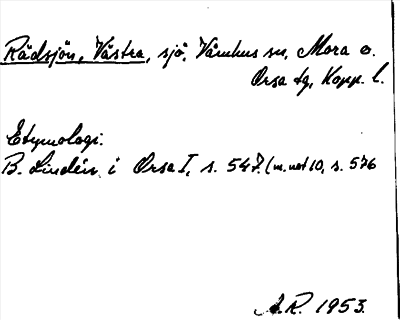 Rädsjön, Västra, sjö, Våmhus sn, Mora o.
Orsa tg, Kopp. l.
Etymologi.
B. Lindén i Orsa I, s. 547 (m. not 10, s. 576
A.R. 1953.